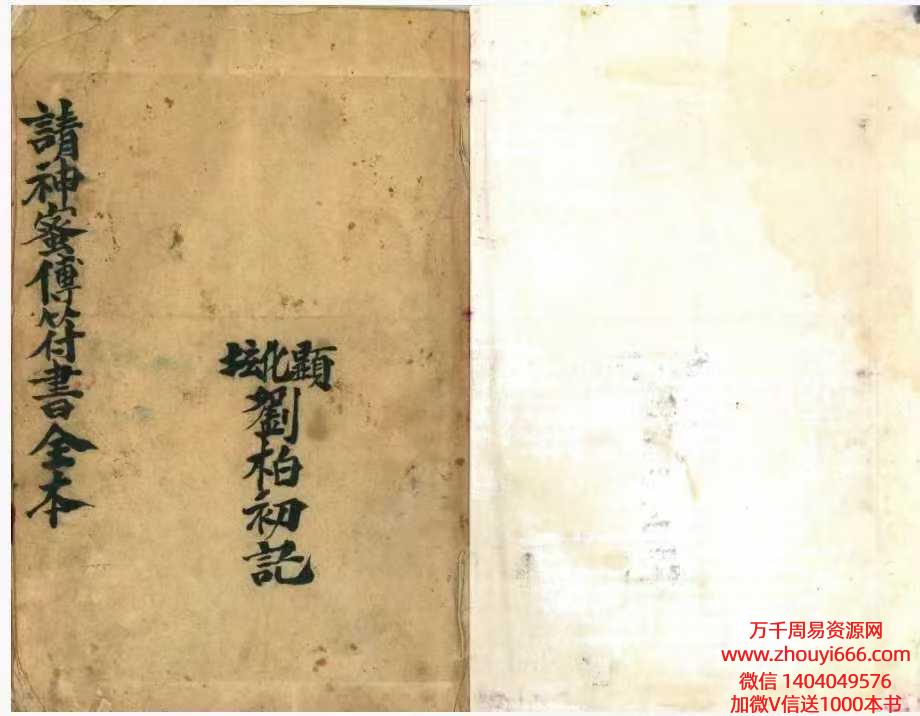 請神蜜傳符書全本
顕化坛
劉柏初記
万千周易资源网
www.zhouyi666.com
微信 1404049576
加微V信送1000本书